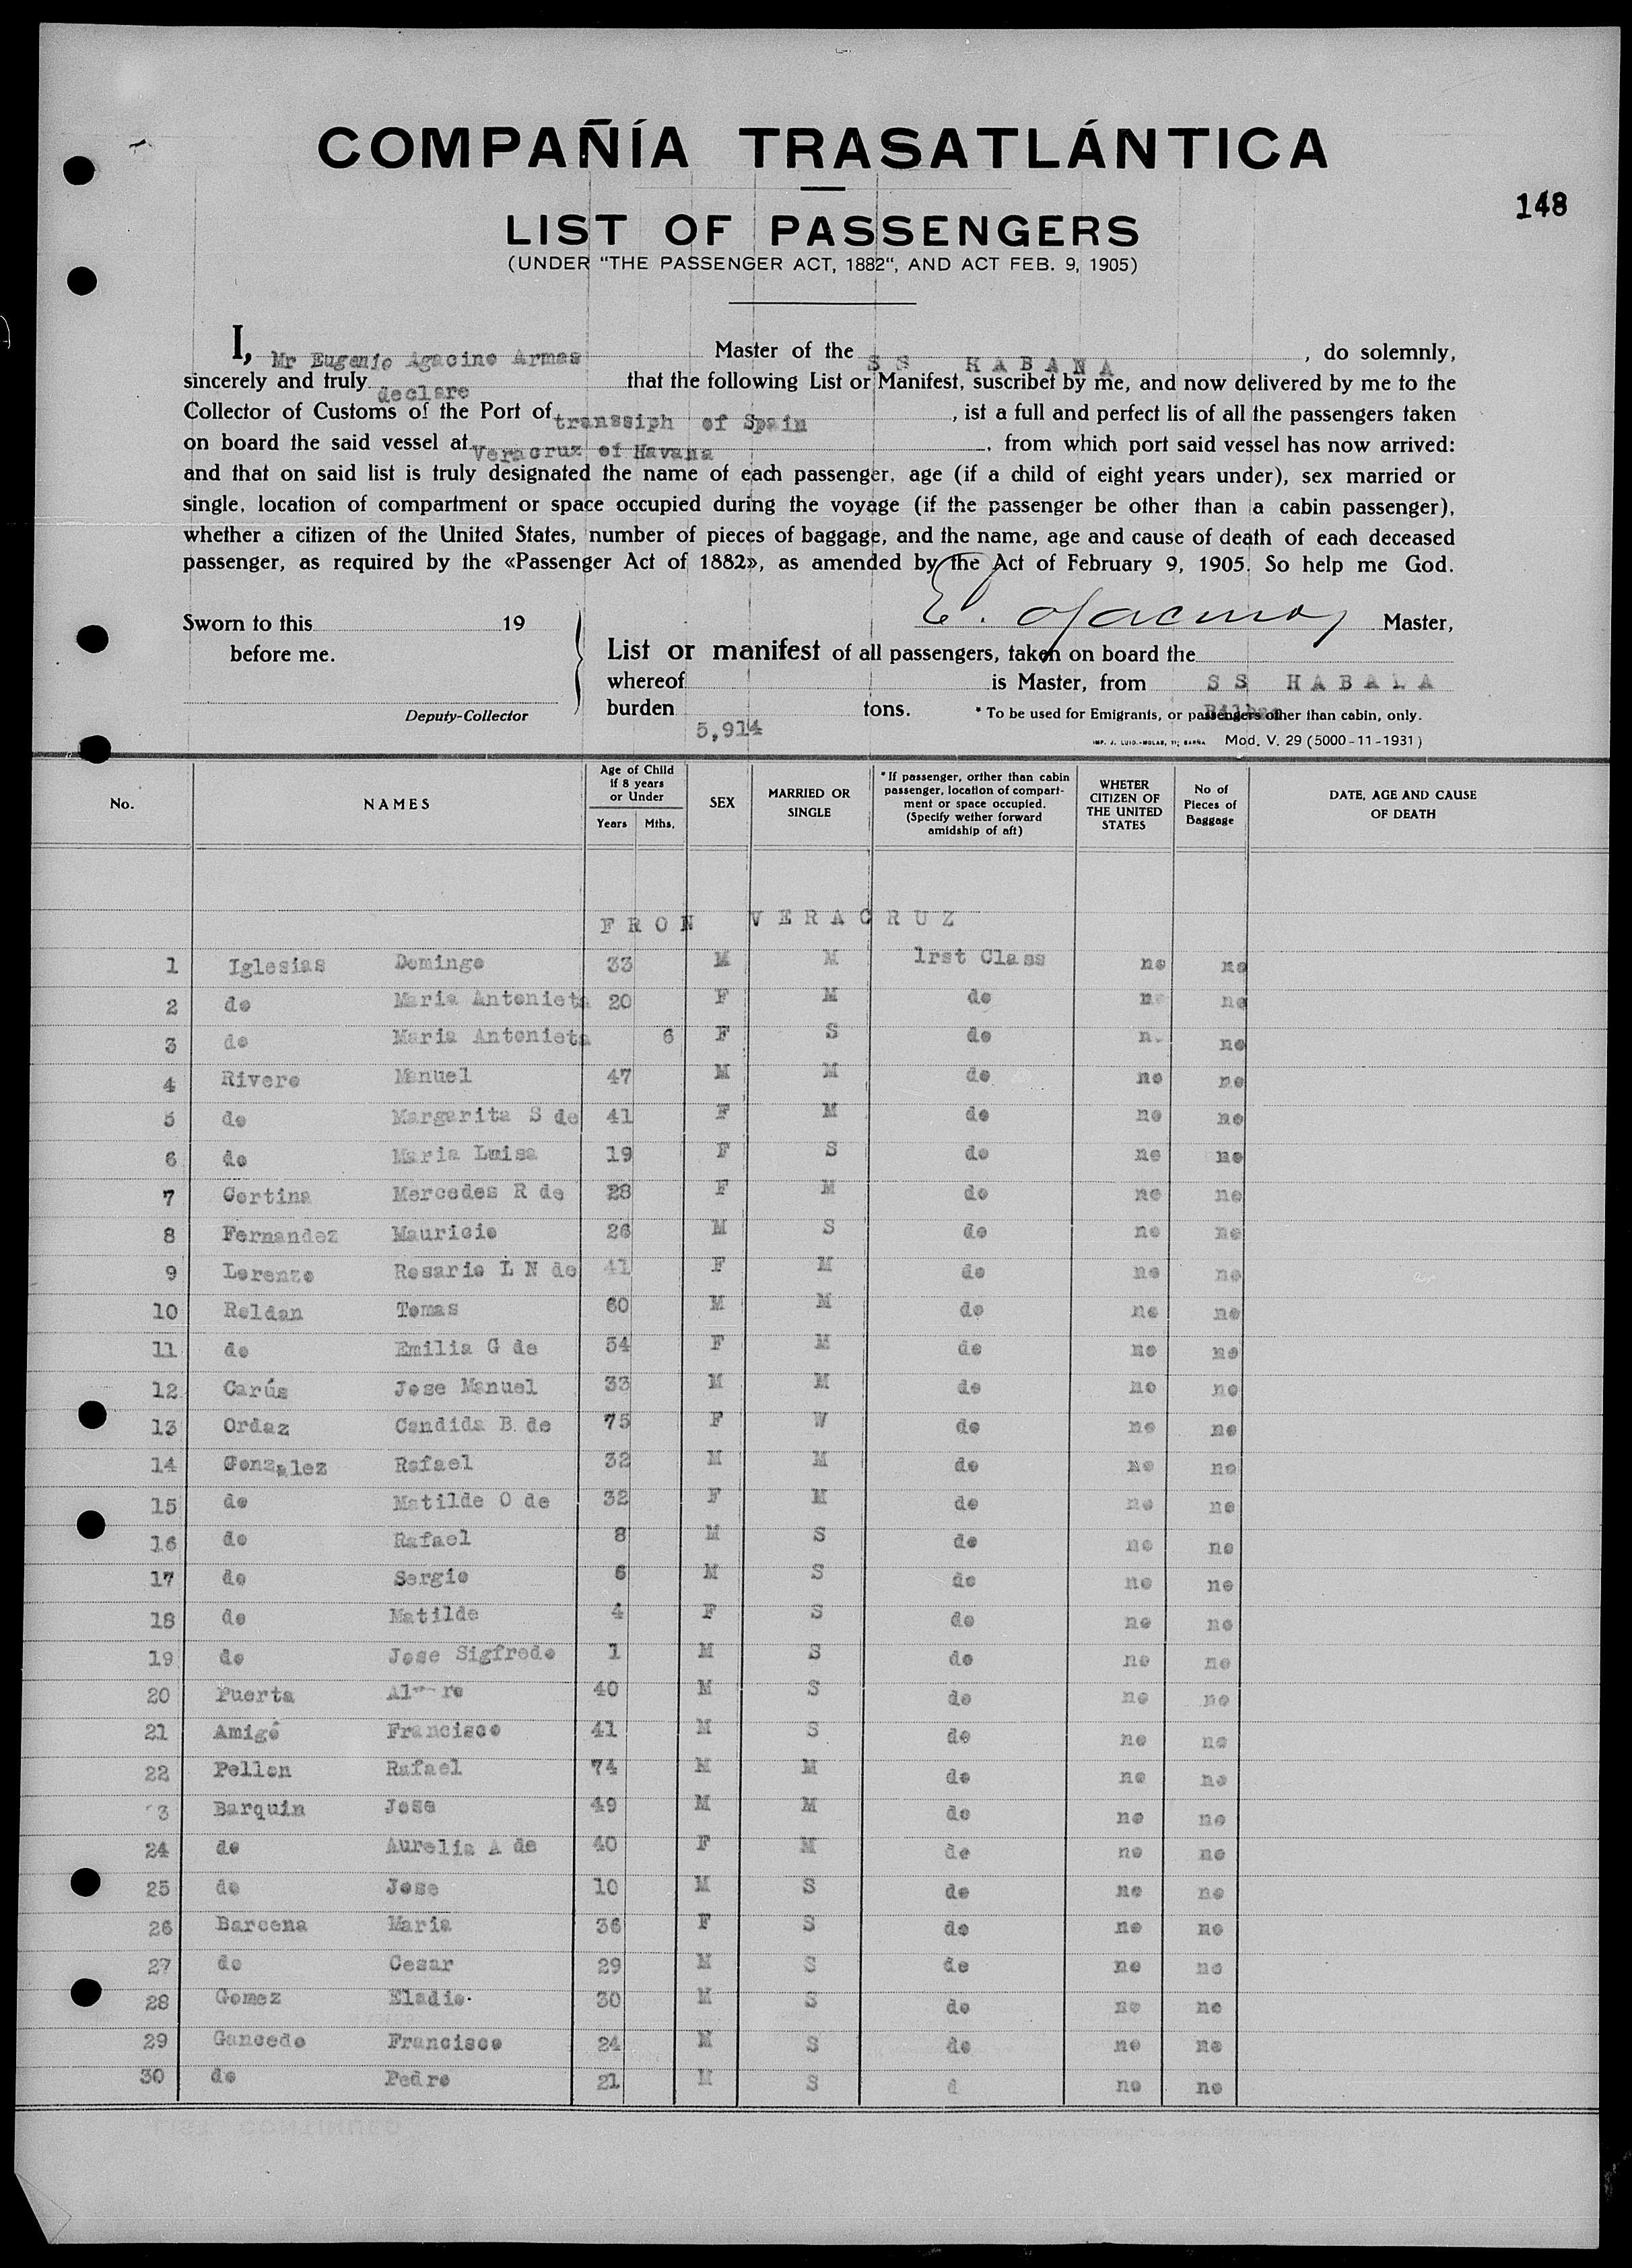 COMPAÑÍA TRASATLÁNTICA
148
LIST OF PASSENGERS
(UNDER "THE PASSENGER ACT, 1882", AND ACT FEB. 9, 1905)
I, Mr Eugenio Agacino Armas Master of the SS HABANA, do solemnly,
sincerely and truly declare that the following List or Manifest, suscribet by me, and now delivered by me to the
Collector of Customs of the Port of transsiph of Spain, ist a full and perfect lis of all the passengers taken
on board the said vessel at Veracruz of Havana, from which port said vessel has now arrived:
and that on said list is truly designated the name of each passenger, age (if a child of eight years under), sex married or
single, location of compartment or space occupied during the voyage (if the passenger be other than a cabin passenger),
whether a citizen of the United States, number of pieces of baggage, and the name, age and cause of death of each deceased
passenger, as required by the «Passenger Act of 1882», as amended by the Act of February 9, 1905. So help me God.
E. Agacino Master,
Sworn to this 19
before me.
Deputy-Collector
List or manifest of all passengers, taken on board the
whereof is Master, from SS HABALA
burden 5,914 tons. * To be used for Emigrants, or passengers other than cabin, only.
Bilbao
Mod. V. 29 (5000-11-1931)
No. NAMES Age of Child if 8 years or Under Years Mths. SEX MARRIED OR SINGLE * If passenger, orther than cabin passenger, location of compartment or space occupied. (Specify wether forward amidship of aft) WHETER CITIZEN OF THE UNITED STATES No of Pieces of Baggage DATE, AGE AND CAUSE OF DEATH
FRON VERACRUZ
1 Iglesias Domingo 33 M M 1rst Class no no
2 do Maria Antonieta 20 F M do no no
3 do Maria Antonieta 6 F S do n. no
4 Rivero Manuel 47 M M do no no
5 do Margarita S de 41 F M do no no
6 do Maria Luisa 19 F S do no no
7 Cortina Mercedes R de 28 F M do no no
8 Fernandez Mauricio 26 M S do no no
9 Lorenzo Rosario L N de 41 F M do no no
10 Roldan Tomas 60 M M do no no
11 do Emilia G de 54 F M do no no
12 Carús Jose Manuel 33 M M do no no
13 Ordaz Candida B. de 75 F W do no no
14 Gonzalez Rafael 32 M M do no no
15 do Matilde O de 32 F M do no no
16 do Rafael 8 M S do no no
17 do Sergio 6 M S do no no
18 do Matilde 4 F S do no no
19 do Jose Sigfredo 1 M S do no no
20 Puerta 40 M S do no no
21 Amigó Francisco 41 M S do no no
22 Pellon Rafael 74 M M do no no
3 Barquin Jose 49 M M do no no
24 do Aurelia A de 40 F M do no no
25 do Jose 10 M S do no no
26 Barcena Maria 36 F S do no no
27 do Cesar 29 M S do no no
28 Gomez Eladio. 30 M S do no no
29 Gancedo Francisco 24 M S do no no
30 do Pedro 21 M S d no no